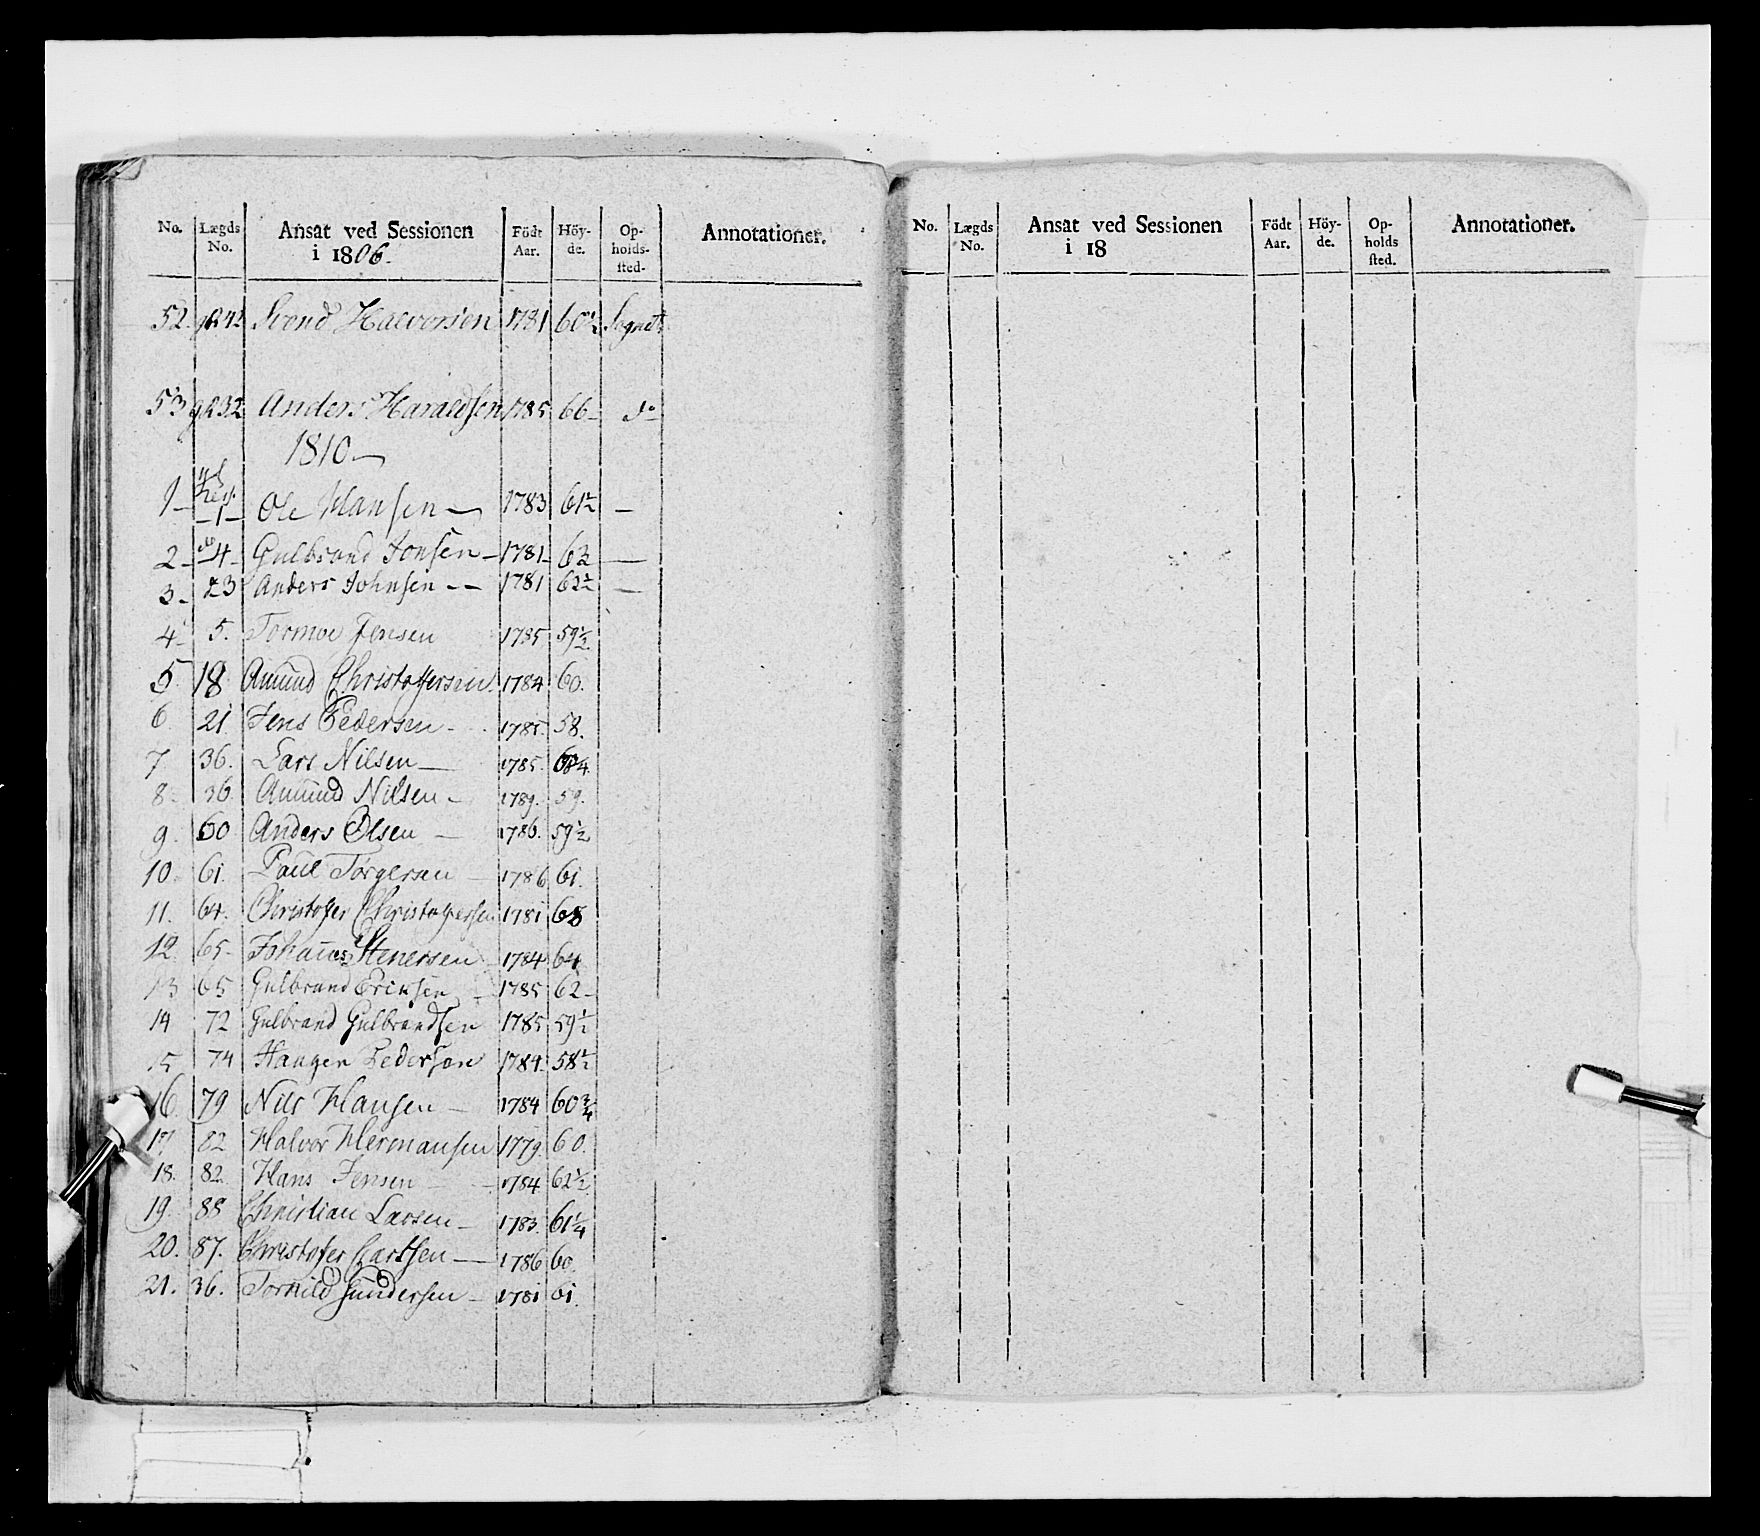 No. Lægds No. Ansat ved Sessionen i 1806. Födt Aar. Höyde. Opholdssted. Annotationer.
52 Svend Halvorsen 1781 60½ Sognet
53 Anders Haraldsen 1785 66 do
1810
1 1 Ole Hansen 1783 61½ —
2 do 4 Gulbrand Jonsen 1781 63 —
3 23 Anders Johnsen 1781 62½ —
4 5. Tormoe Jensen 1785 59½
5 18 Amund Christofersen 1784 60.
6. 21. Jens Pedersen 1785. 58.
7. 36. Lars Nilsen 1785.
8. 36. Amund Nilsen 1789. 59.
9. 60 Anders Olsen 1786. 59½
10. 61. Paul Torgersen 1786 61.
11. 64. Christofer Christophersen 1781 68
12. 65. Johannes Stenersen 1784 64
13 65 Gulbrand Eriksen 1785 62
14 72 Gulbrand Gulbrandsen 1785 59½
15 74 Haagen Pedersen 1784 58½
16. 79 Nils Hansen 1784 60¾
17 82 Halvor Hermansen 1779. 60.
18. 82. Hans Jensen 1784 62½
19. 88 Christian Larsen 1783. 61¼
20. 87. Christofer Carlsen 1786 60.
21. 36. Torkild Gundersen 1781 61.
No. Lægds No. Ansat ved Sessionen i 18 Födt Aar. Höyde. Opholds sted. Annotationer.